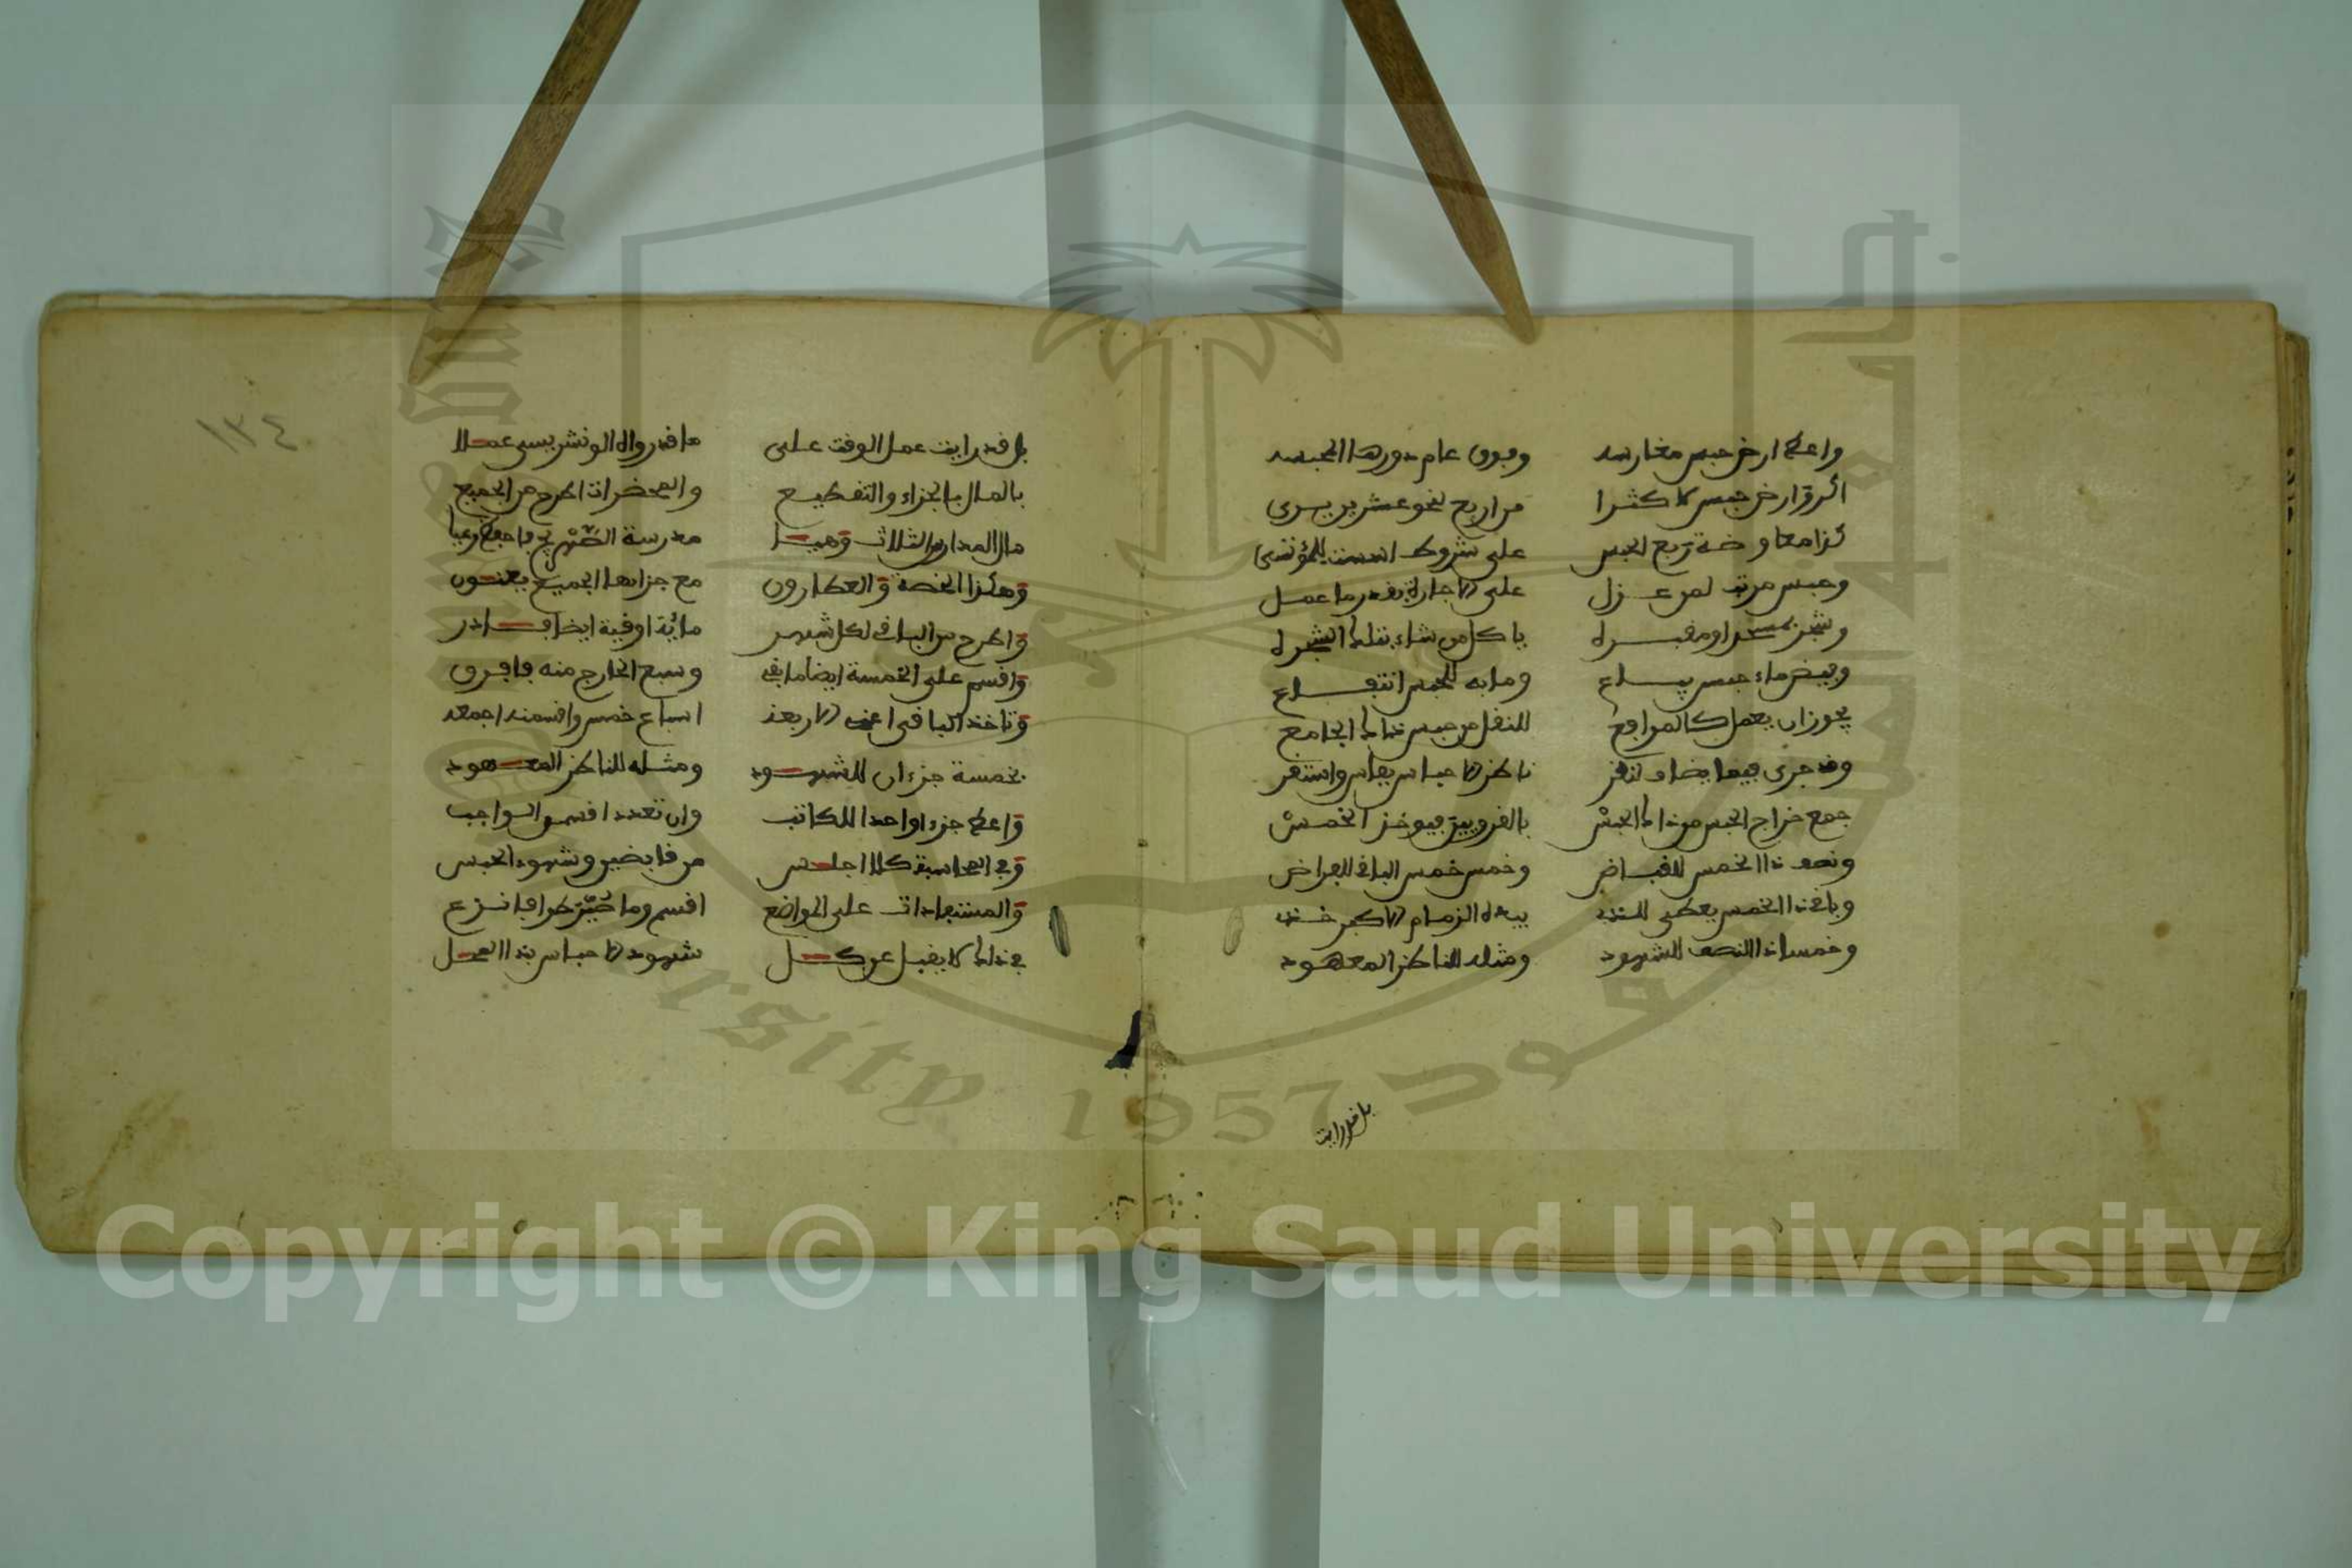 واعط ارض حبس مغارسه وفوق عام دورها المحبسه
اكر ارض حبس لا كثرا من اربع نحو عشرين يرى
كذا معاوضة ربع الحبس على شروط
وحبس مرتب لمن عزل على الاجارة بقدر ما عمل
وشجر او مقبره ياكل من شاء بتلك الشجره
وبيض ماء حبس يباع وما به للحبس انتفاع
يجوز ان يعمل كالمرافع للنفل من حبس ذاك الجامع
وقد جرى فيما يضاف لنظر ناظر الاحباس بفاس واستقر
جمع خراج الحبس من ذاك الحبس بالقرويين فيوخذ الخمس
ونصف ذا الخمس للقباض وخمس خمس الباقي للعراض
وباقي ذا الخمس يعطى للذي بيده الزمام الاكبر خذ
وخمسا ذا النصف للشهود ومثله للناظر المعهود
بل قد رايت
١٣٤
بل قد رايت عمل الوقت على ما قد رواه الونشريسي عملا
بالمال بالجزاء والتقطيع والمحضرات اطرح من الجميع
مال المدارس الثلاث وهيا مدرسة
وهكذا الخصة والعطارون مع جزائها الجميع يعنون
واطرح من الباقي لكل شهر مائة اوقية ايضا فادر
واقسم على الخمسة ايضا ما بقي وسبع الخارج منه فافرق
وتاخذ الباقي اعني الاربعه اسباع خمس واقسمنه اجمعه
بخمسة جزءان للشهود ومثله للناظر المعهود
واعط جزءا واحدا للكاتب وان تعدد اقسم الواجب
وفي المحاسبة كلا اجلس من قابضين وشهود الحبس
والمستفادات على المواضع اقسم وما
في ذاك لا يقبل عن كل شهود الاحباس بذا العمل
Copyright © King Saud University
1957